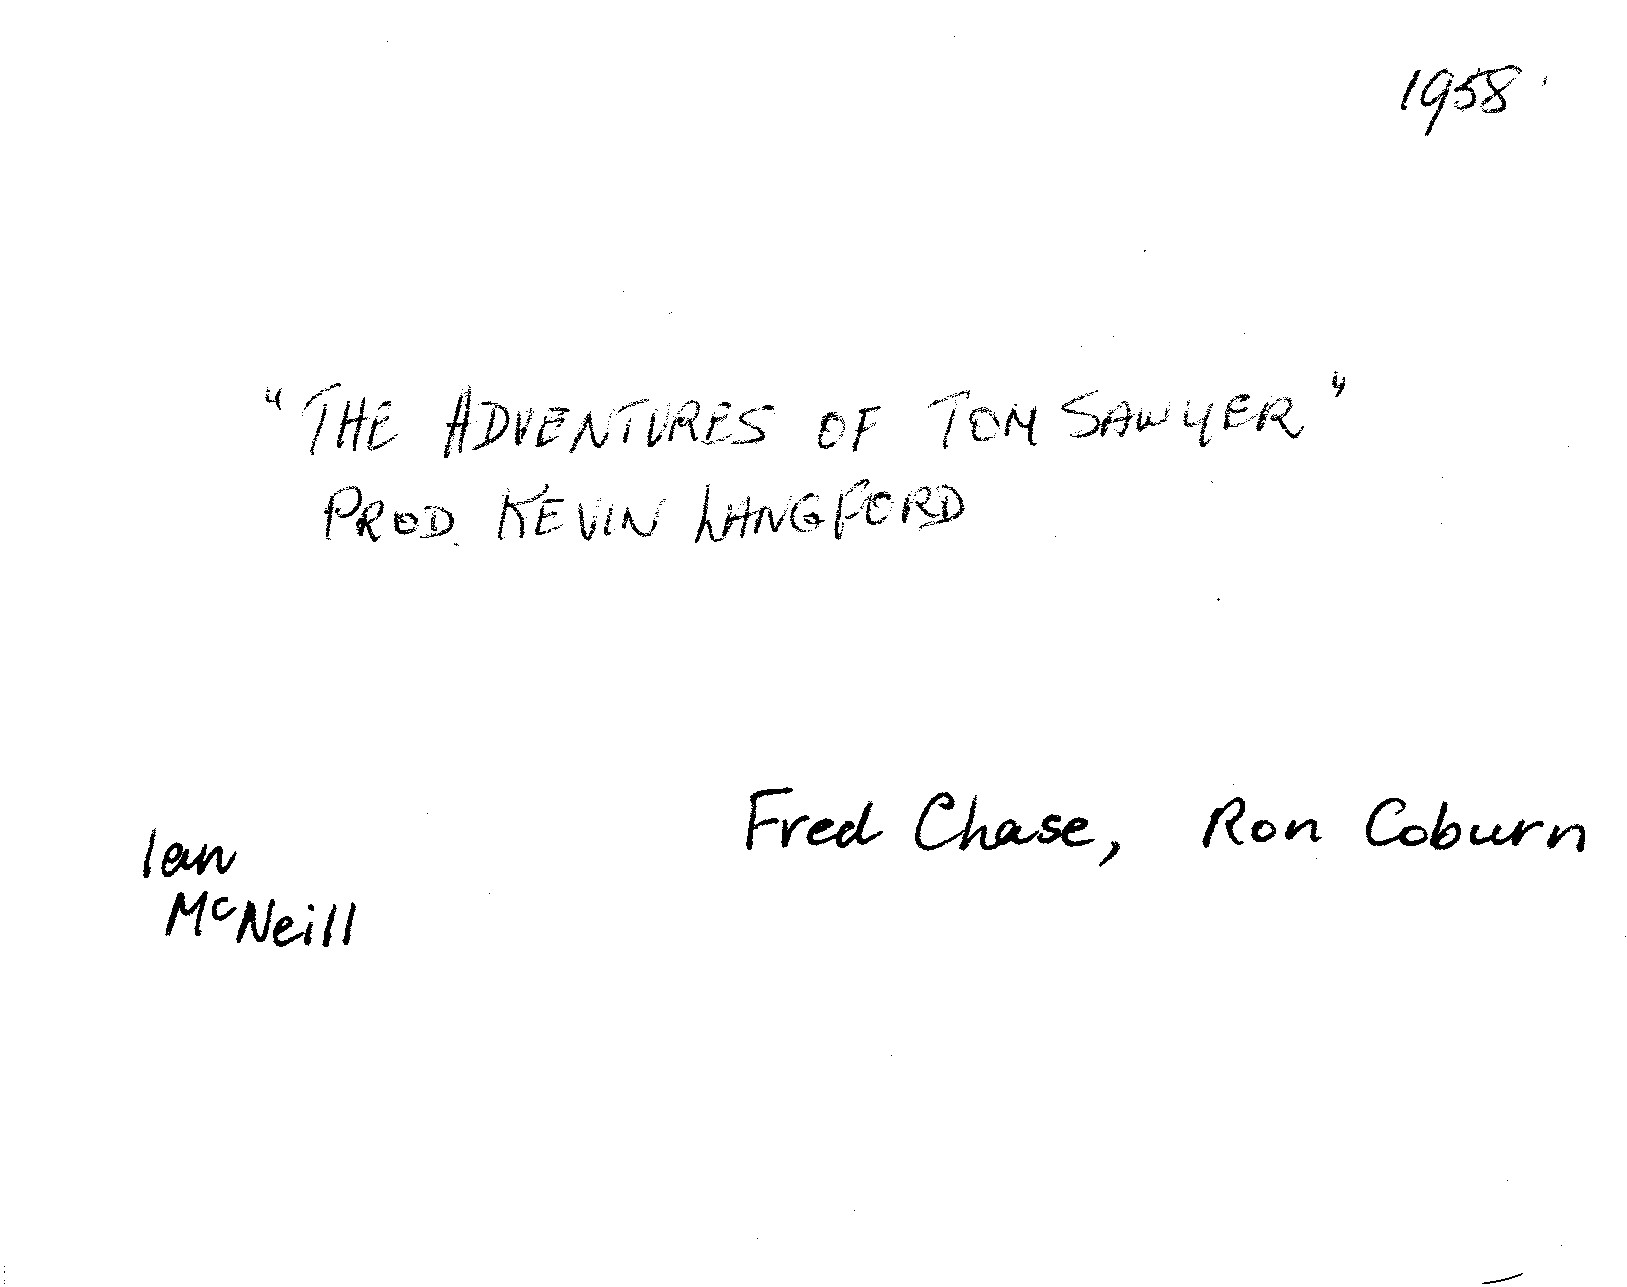 1958
"THE ADVENTURES OF TOM SAWYER"
PROD. KEVIN LANGFORD
Fred Chase, Ron Coburn
Ian
McNeill